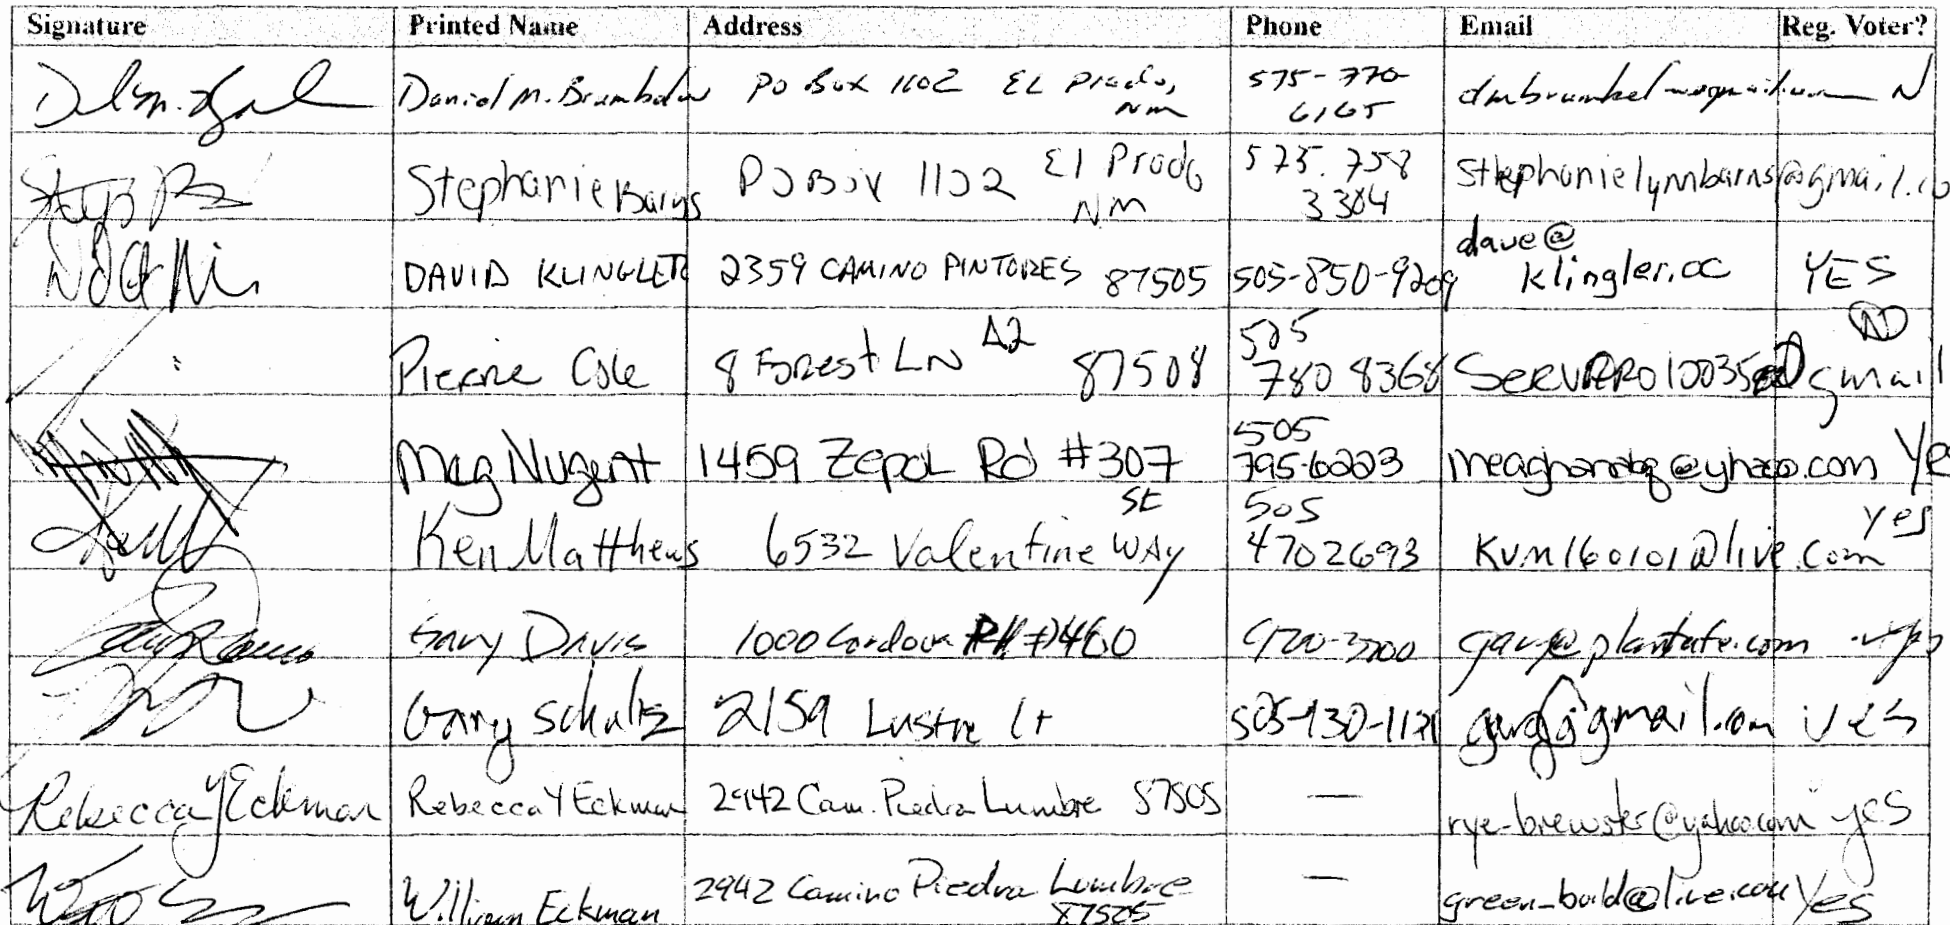 Signature Printed Name Address Phone Email Reg. Voter?
Daniel M. PO Box 1102 El Prado, NM 575-770-6165 N
Stephanie Barns PO Box 1102 El Prado NM 575.758 3304 Stephanielynnbarns@gmail.co
DAVID KLINGLER 2359 CAMINO PINTORES 87505 505-850-9209 dave@klingler.cc YES
Pierre Cole 8 Forest LN A2 87508 505 780 8368 gmail NO
Meg Nugent 1459 Zepol Rd #307 505 795-6223 Yes
Ken Matthews 6532 Valentine WAY St 505 4702693 KVM160101@live.com yes
Gary Davis 1000 Cordova Pl #460
Gary Schultz 2159 Lustre Ct gmail.com yes
Rebecca Y Eckman Rebecca Y Eckman 2942 Cam. Piedra Lumbre 87505 — rye-brewster@yahoo.com yes
William Eckman 2942 Camino Piedra Lumbre 87505 — green_build@live.com Yes